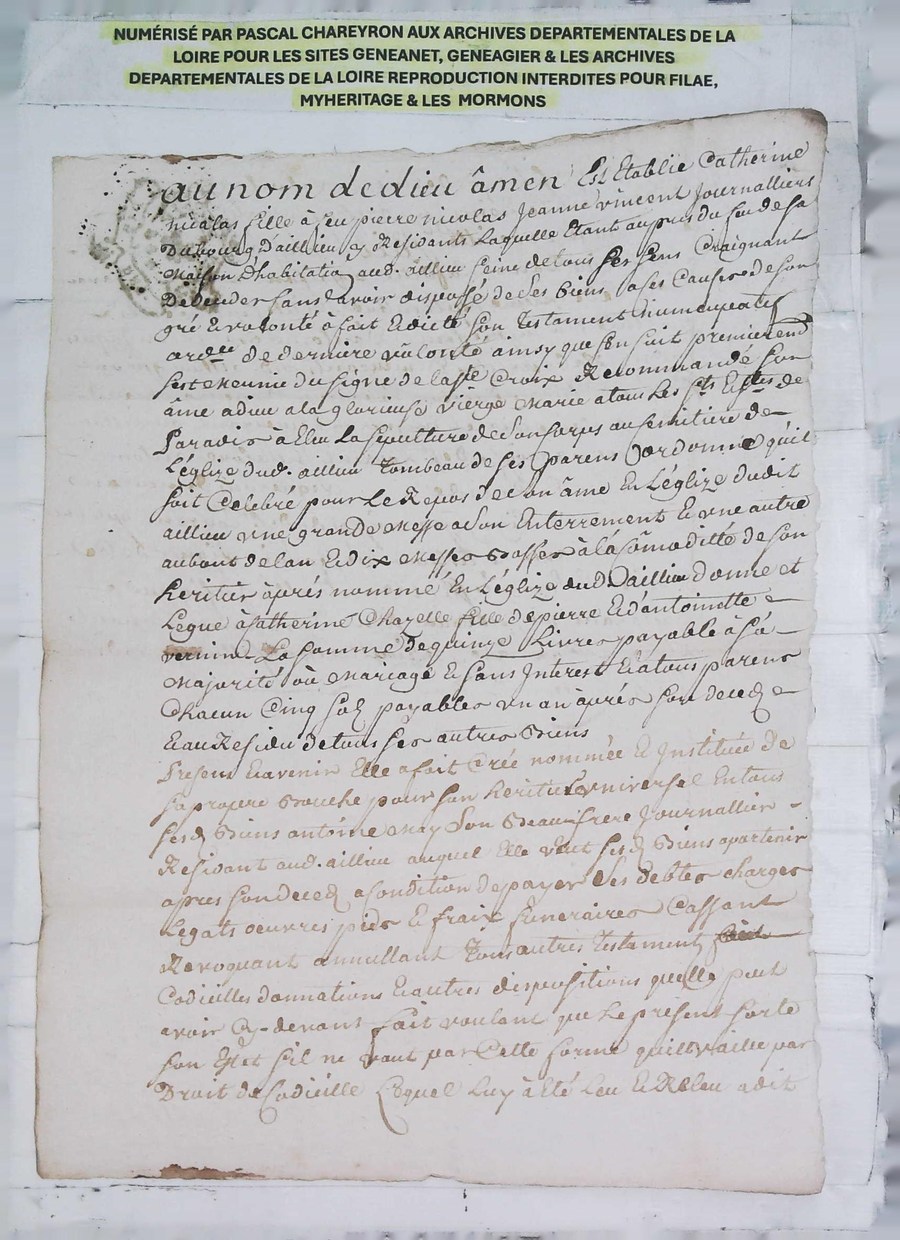 NUMÉRISÉ PAR PASCAL CHAREYRON AUX ARCHIVES DEPARTEMENTALES DE LA
LOIRE POUR LES SITES GENEANET, GENEAGIER & LES ARCHIVES
DEPARTEMENTALES DE LA LOIRE REPRODUCTION INTERDITES POUR FILAE,
MYHERITAGE & LES MORMONS
au nom de dieu âmen Est Etablie Catherine
nicolas fille à feu pierre nicolas Jeanne vincent Journalliers
Du bourg D'aillieu y Residants Laquelle Etant aupres du feu de sa
Maison d'habitation aud. aillieu seine de tous ses sens Craignant
De deceder sans avoir disposé de ses biens a ses Causes de son
gré & volonté à fait & dicté son Testament Numcupatif
ord.re de derniere vûlonté ainsy que s'en suit premierem.t
s'est munie du signe de la s.te Croix Recommandé son
âme a dieu a la glorieuse vierge Marie a tous les s.ts & s.tes de
Paradis à Eleu La sepulture de son Corps au semitiere de
L'églize dud. aillieu Tombeau de ses parens ordonne qu'il
soit Celebré pour Le Repos de son âme En L'églize dudit
aillieu une grande Messe a son Enterrement & une autre
au bout de lan & dix Messes Basses à la Cômoditté de son
heritier âprés nommé En L'églize dud. aillieu donne et
Legue à Catherine Chazelle fille de pierre & d'antoinette
vernin La somme de quinze Livres payable à sa
Majorité où Mariage & sans Interest & a tous parens
Chacun Cinq sols payables un an âprés son decez
& au Residu de tous ses autres Biens
Present & avenir Elle a fait Crée nommée & Instituée de
sa propre Bouche pour son heritier universel En tous
sesd. Biens antoine May son Beau frere Journallier
Residant aud. aillieu auquel Elle veut sesd. Biens apartenir
apres son decez a Condition de payer ses debtes Charges
Legats oeuvres pies & fraix funeraires Cassant
Revoquant annullant Tous autres Testament
Codicilles donnations & autres dispositions quelle peut
avoir Cy-devant fait voulant que Le present sorte
son Effet s'il ne vaut par Cette forme qu'il vaille par
Droit de Codicille Lequel Luy à été Leu & Releu a dit